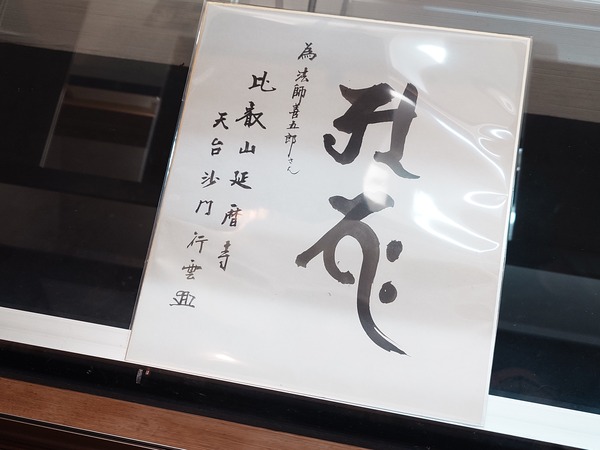 為法師喜五郎さん
比叡山延暦寺
天台沙門行雲